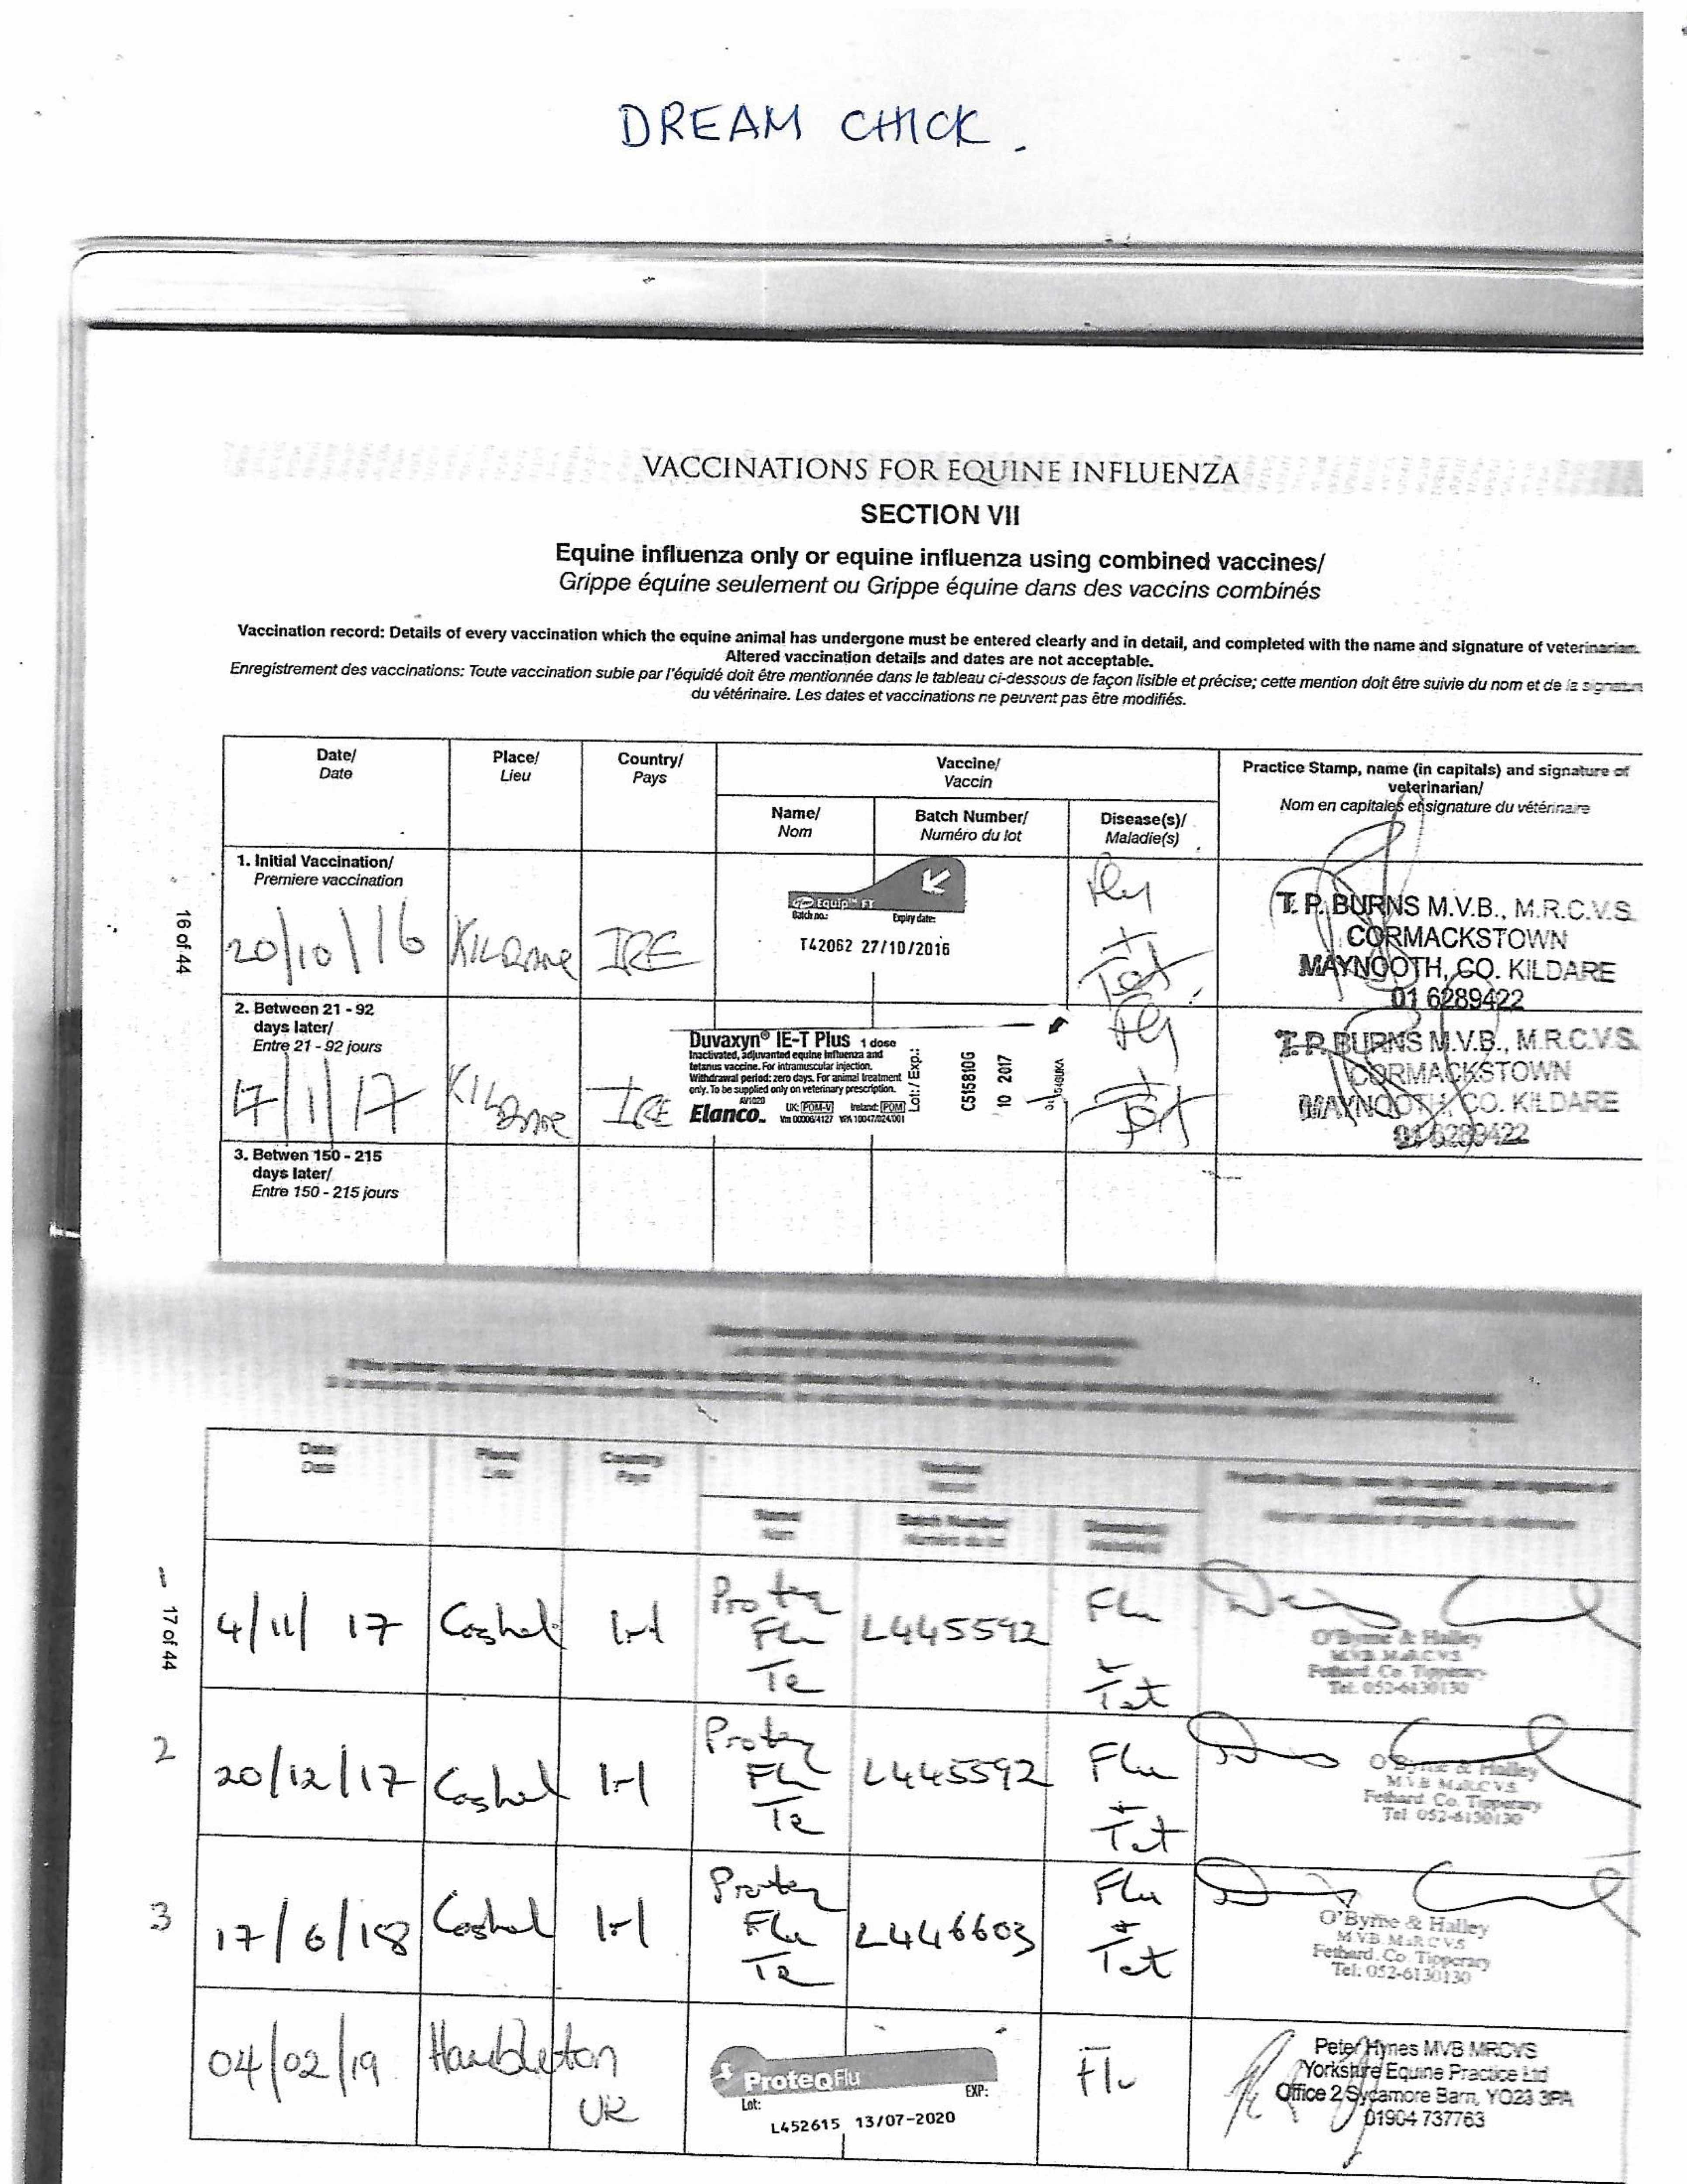 DREAM CHICK.
VACCINATIONS FOR EQUINE INFLUENZA
SECTION VII
Equine influenza only or equine influenza using combined vaccines/
Grippe équine seulement ou Grippe équine dans des vaccins combinés
Vaccination record: Details of every vaccination which the equine animal has undergone must be entered clearly and in detail, and completed with the name and signature of veterinarian.
Altered vaccination details and dates are not acceptable.
Enregistrement des vaccinations: Toute vaccination subie par l'équidé doit être mentionnée dans le tableau ci-dessous de façon lisible et précise; cette mention doit être suivie du nom et de la signature
du vétérinaire. Les dates et vaccinations ne peuvent pas être modifiés.
Date/ Place/ Country/ Vaccine/ Practice Stamp, name (in capitals) and signature of
Date Lieu Pays Vaccin veterinarian/
Nom en capitales et signature du vétérinaire
Name/ Batch Number/ Disease(s)/
Nom Numéro du lot Maladie(s)
16 of 44
1. Initial Vaccination/
Premiere vaccination
20/10/16 KILDARE IRE
Equip™ FT
Batch no.: Expiry date:
T42062 27/10/2016
Flu
+
Tet
T. P. BURNS M.V.B., M.R.C.V.S.
CORMACKSTOWN
MAYNOOTH, CO. KILDARE
01 6289422
2. Between 21 - 92
days later/
Entre 21 - 92 jours
17/1/17 KILDARE IRE
Duvaxyn® IE-T Plus 1 dose
Inactivated, adjuvanted equine influenza and
tetanus vaccine. For intramuscular injection.
Withdrawal period: zero days. For animal treatment
only. To be supplied only on veterinary prescription.
AV1020
Elanco UK: POM-V Ireland: POM
Vm 00006/4127 VPA 10047/024/001
Lot / Exp.:
C515810G
10 2017
Flu
+
Tet
T. P. BURNS M.V.B., M.R.C.V.S.
CORMACKSTOWN
MAYNOOTH, CO. KILDARE
01 6289422
3. Betwen 150 - 215
days later/
Entre 150 - 215 jours
Date/ Place/ Country/
Date Lieu Pays
Name/ Batch Number/
Nom Numéro du lot
17 of 44
1
4/11/17 Cashel Irl Proteq Flu Te L445592 Flu + Tet
O'Byrne & Halley
M.V.B. M.R.C.V.S.
Fethard. Co. Tipperary
Tel: 052-6130130
2
20/12/17 Cashel Irl Proteq Flu Te L445592 Flu + Tet
O'Byrne & Halley
M.V.B M.R.C.V.S.
Fethard. Co. Tipperary
Tel: 052-6130130
3
17/6/18 Cashel Irl Proteq Flu Te L446603 Flu + Tet
O'Byrne & Halley
M.V.B. M.R.C.V.S
Fethard. Co. Tipperary
Tel: 052-6130130
04/02/19 Hambleton UK
ProteqFlu
Lot: EXP:
L452615 13/07-2020
Flu
Peter Hynes MVB MRCVS
Yorkshire Equine Practice Ltd
Office 2 Sycamore Barn, YO23 3PA
01904 737763